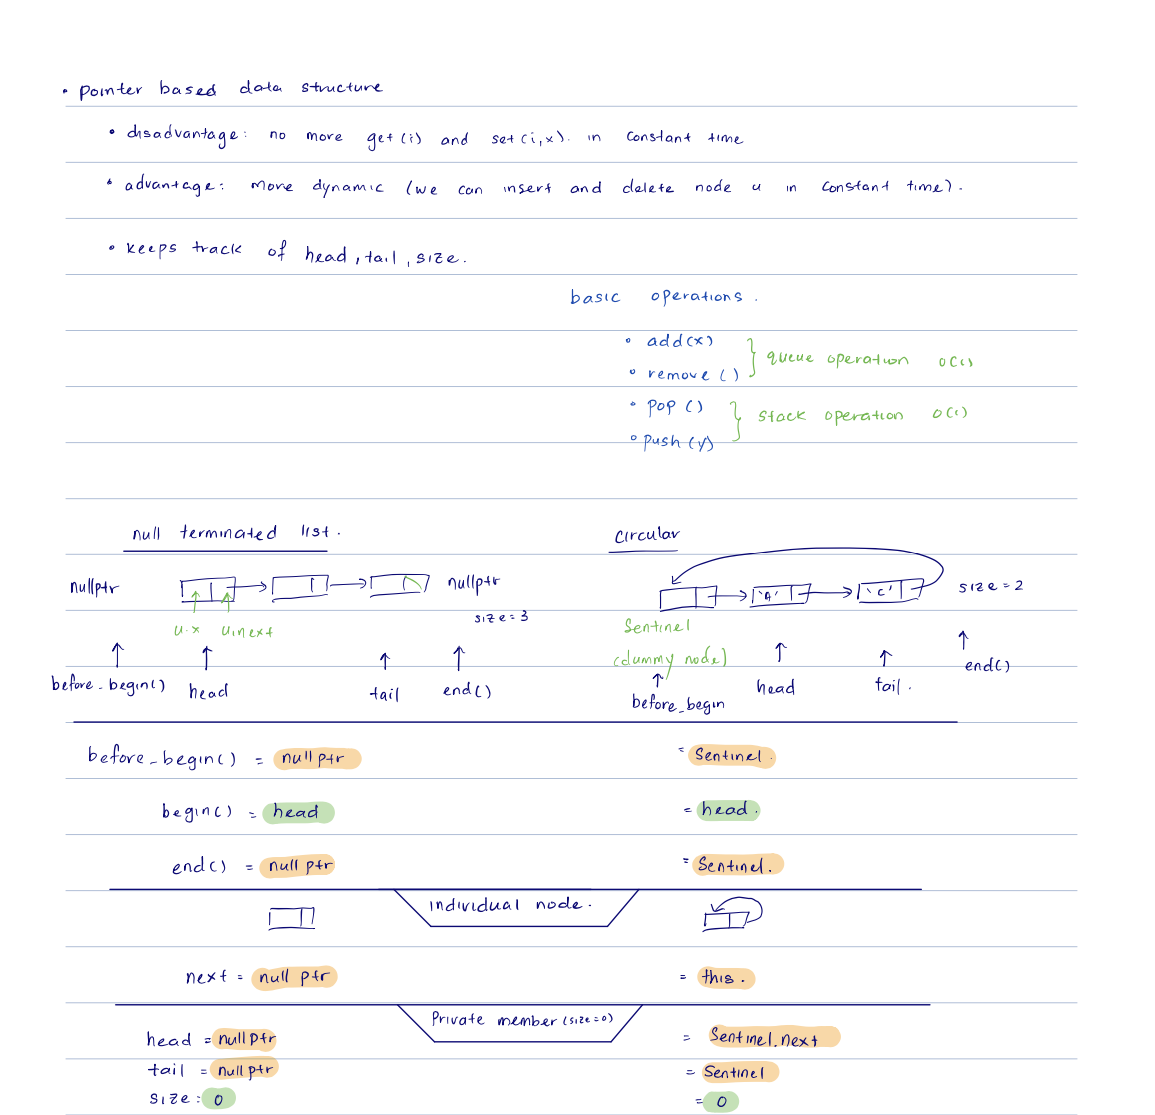 • pointer based data structure
• disadvantage: no more get(i) and set(i,x). in constant time
• advantage: more dynamic (we can insert and delete node u in constant time).
• keeps track of head, tail, size.
basic operations.
• add(x)
• remove()
} queue operation O(1)
• pop()
• push(y)
} stack operation O(1)
null terminated list.
nullptr
nullptr
size=3
u.x u.next
before_begin()
head
tail
end()
circular
'A'
'C'
size=2
Sentinel
(dummy node)
before_begin
head
tail.
end()
before_begin() = nullptr = Sentinel.
begin() = head = head.
end() = nullptr = Sentinel.
individual node.
next = nullptr = this.
Private member (size=0)
head = nullptr = Sentinel.next
tail = nullptr = Sentinel
size: 0 = 0